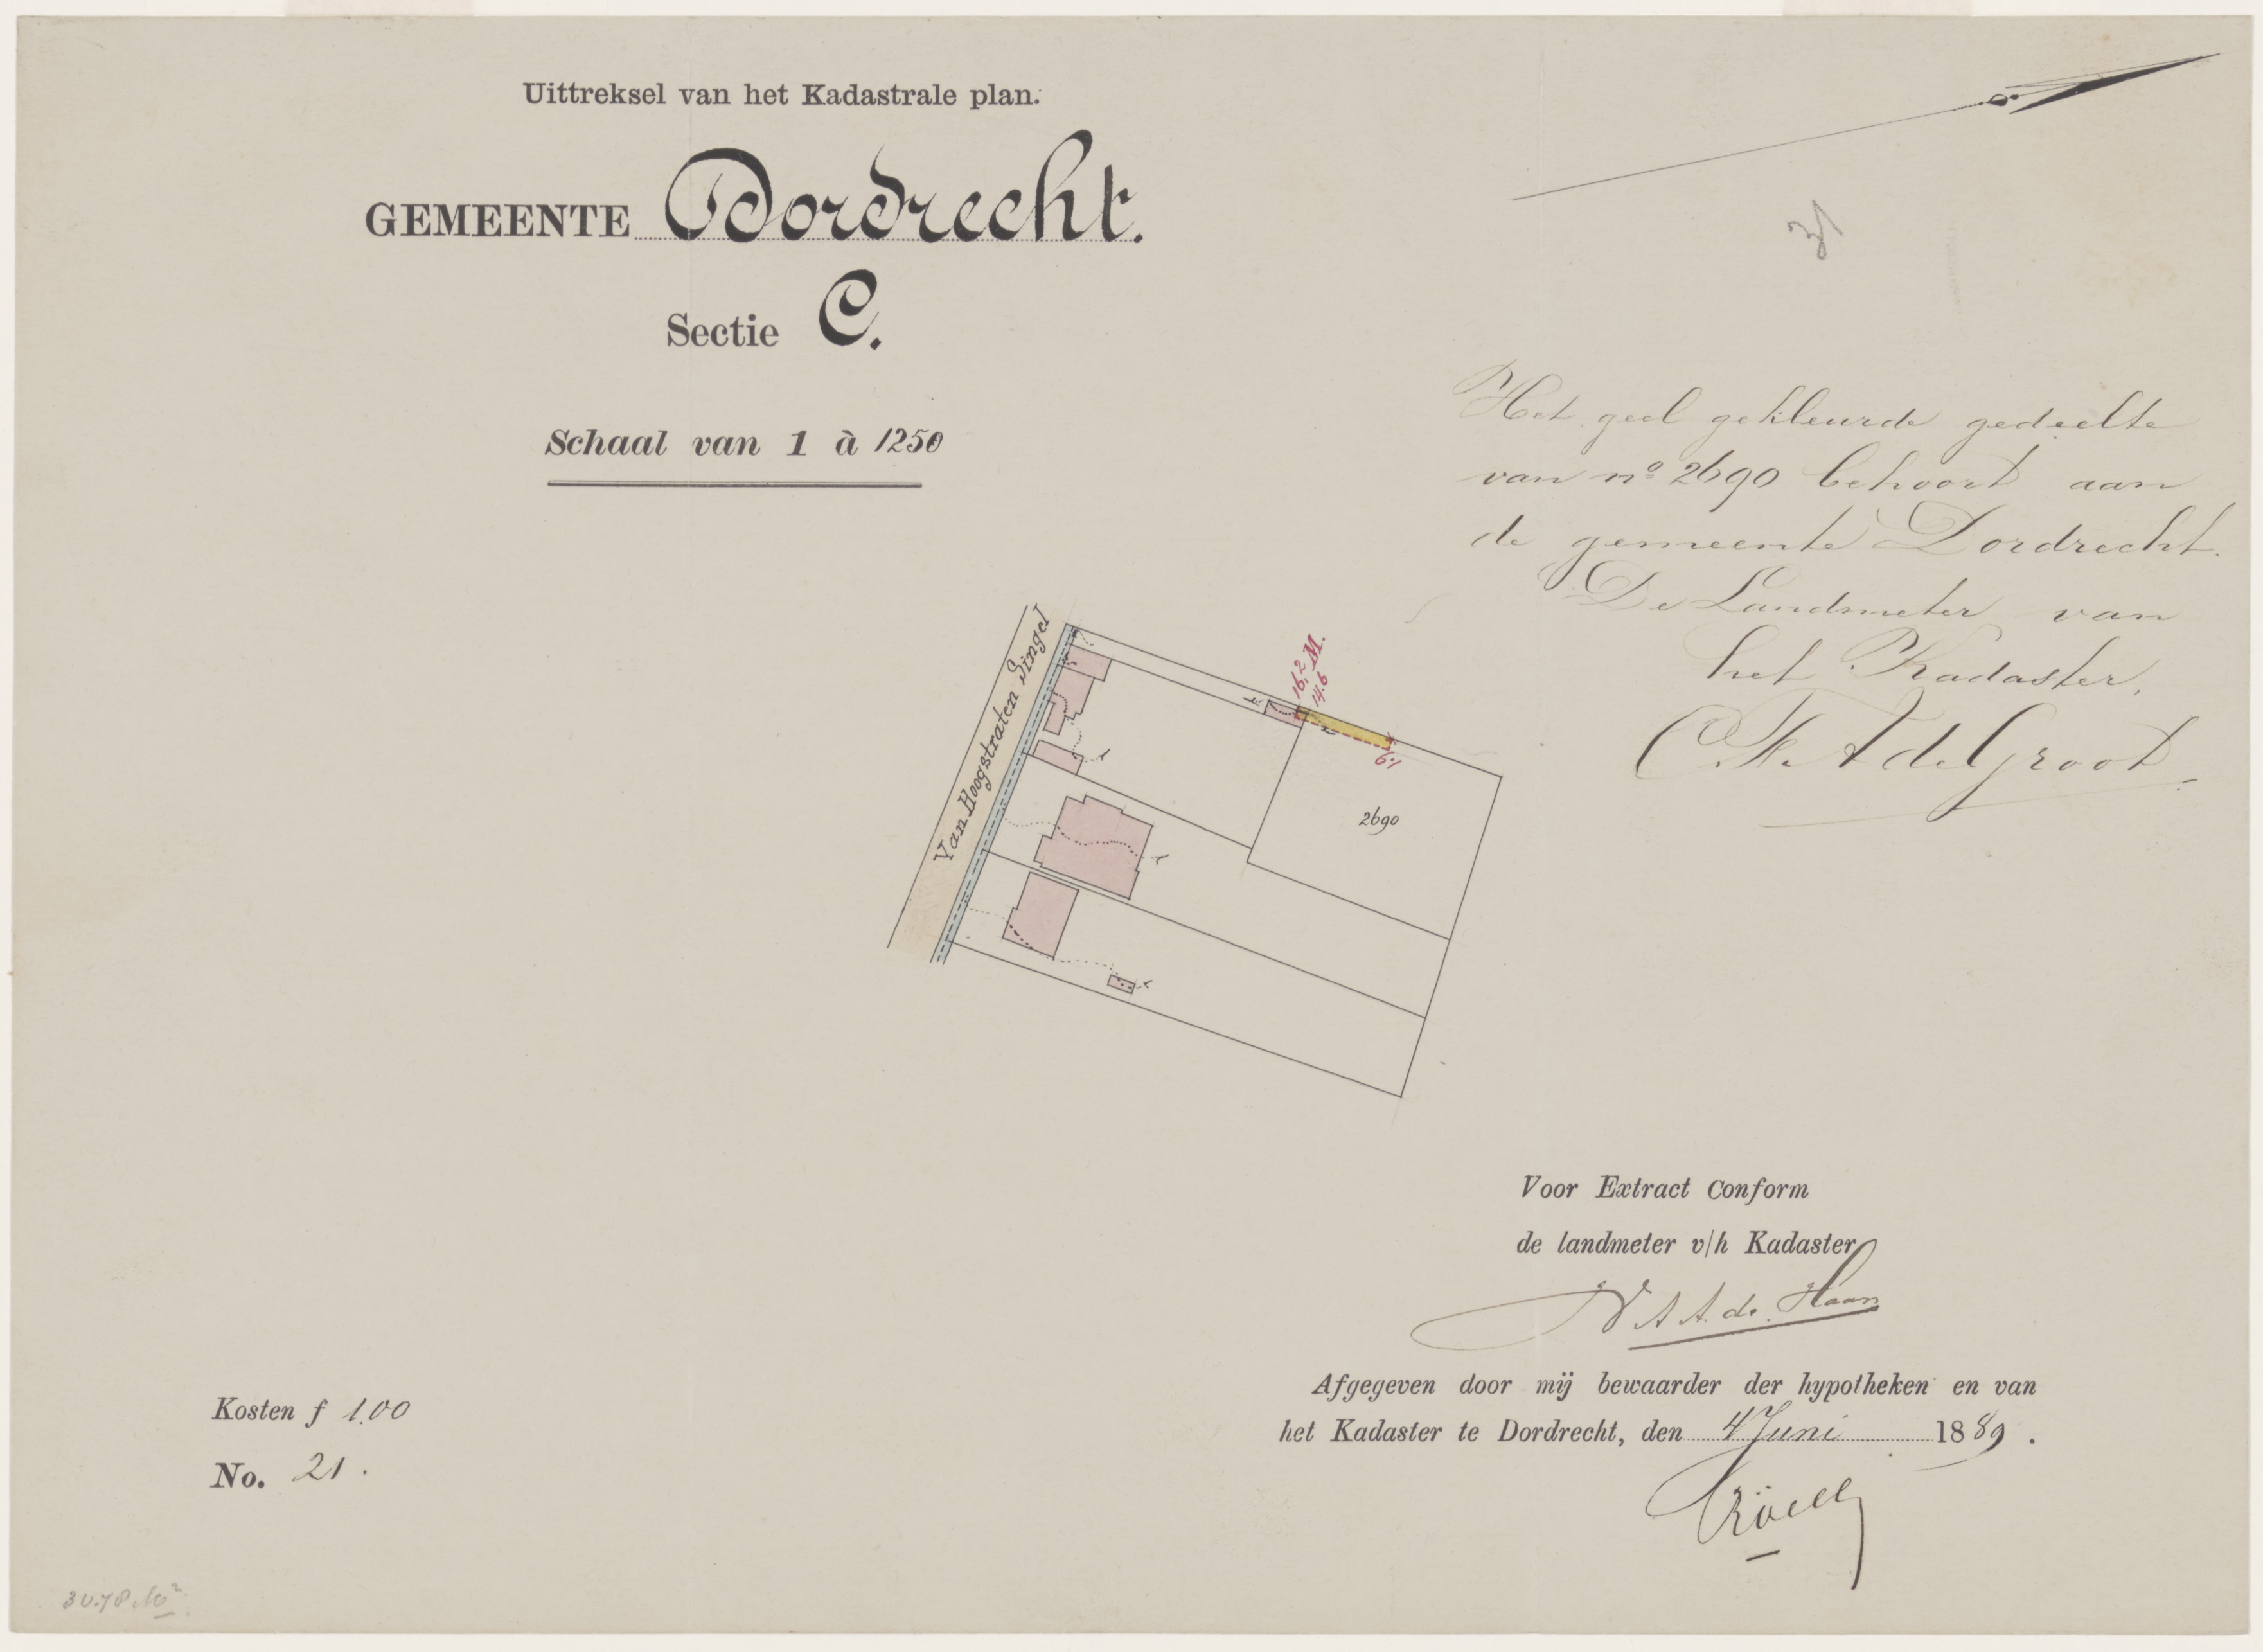 Uittreksel van het Kadastrale plan.
GEMEENTE Dordrecht.
Sectie C.
Schaal van 1 à 1250
31
Het geel gekleurde gedeelte
van nº 2690 behoort aan
de gemeente Dordrecht.
De Landmeter van
het Kadaster,
de Groot
Van Hoogstraten Singel
16,2 M.
14.6
1.9
2690
Voor Extract Conform
de landmeter v/h Kadaster
A A. de Haan
Afgegeven door mij bewaarder der hypotheken en van
het Kadaster te Dordrecht, den 4 Juni 1889.
Röell
Kosten f 1.00
No. 21.
30.78 M²